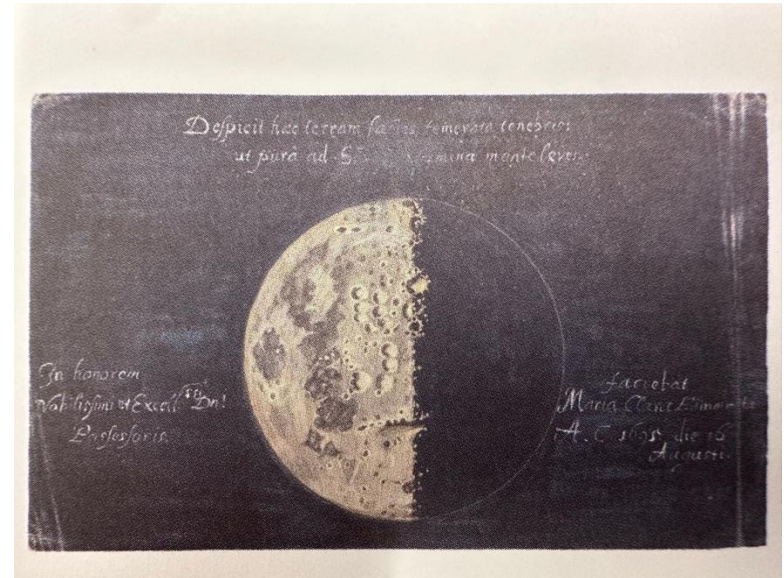 Despicit hæc terram facies temerata tenebris:
ut pura ad mina mente leves
In honorem
Nobilissimi et Excell Dni
Possessoris
faciebat
Maria Clara Eimmarta
A. C. 1695, die 16
Augusti.